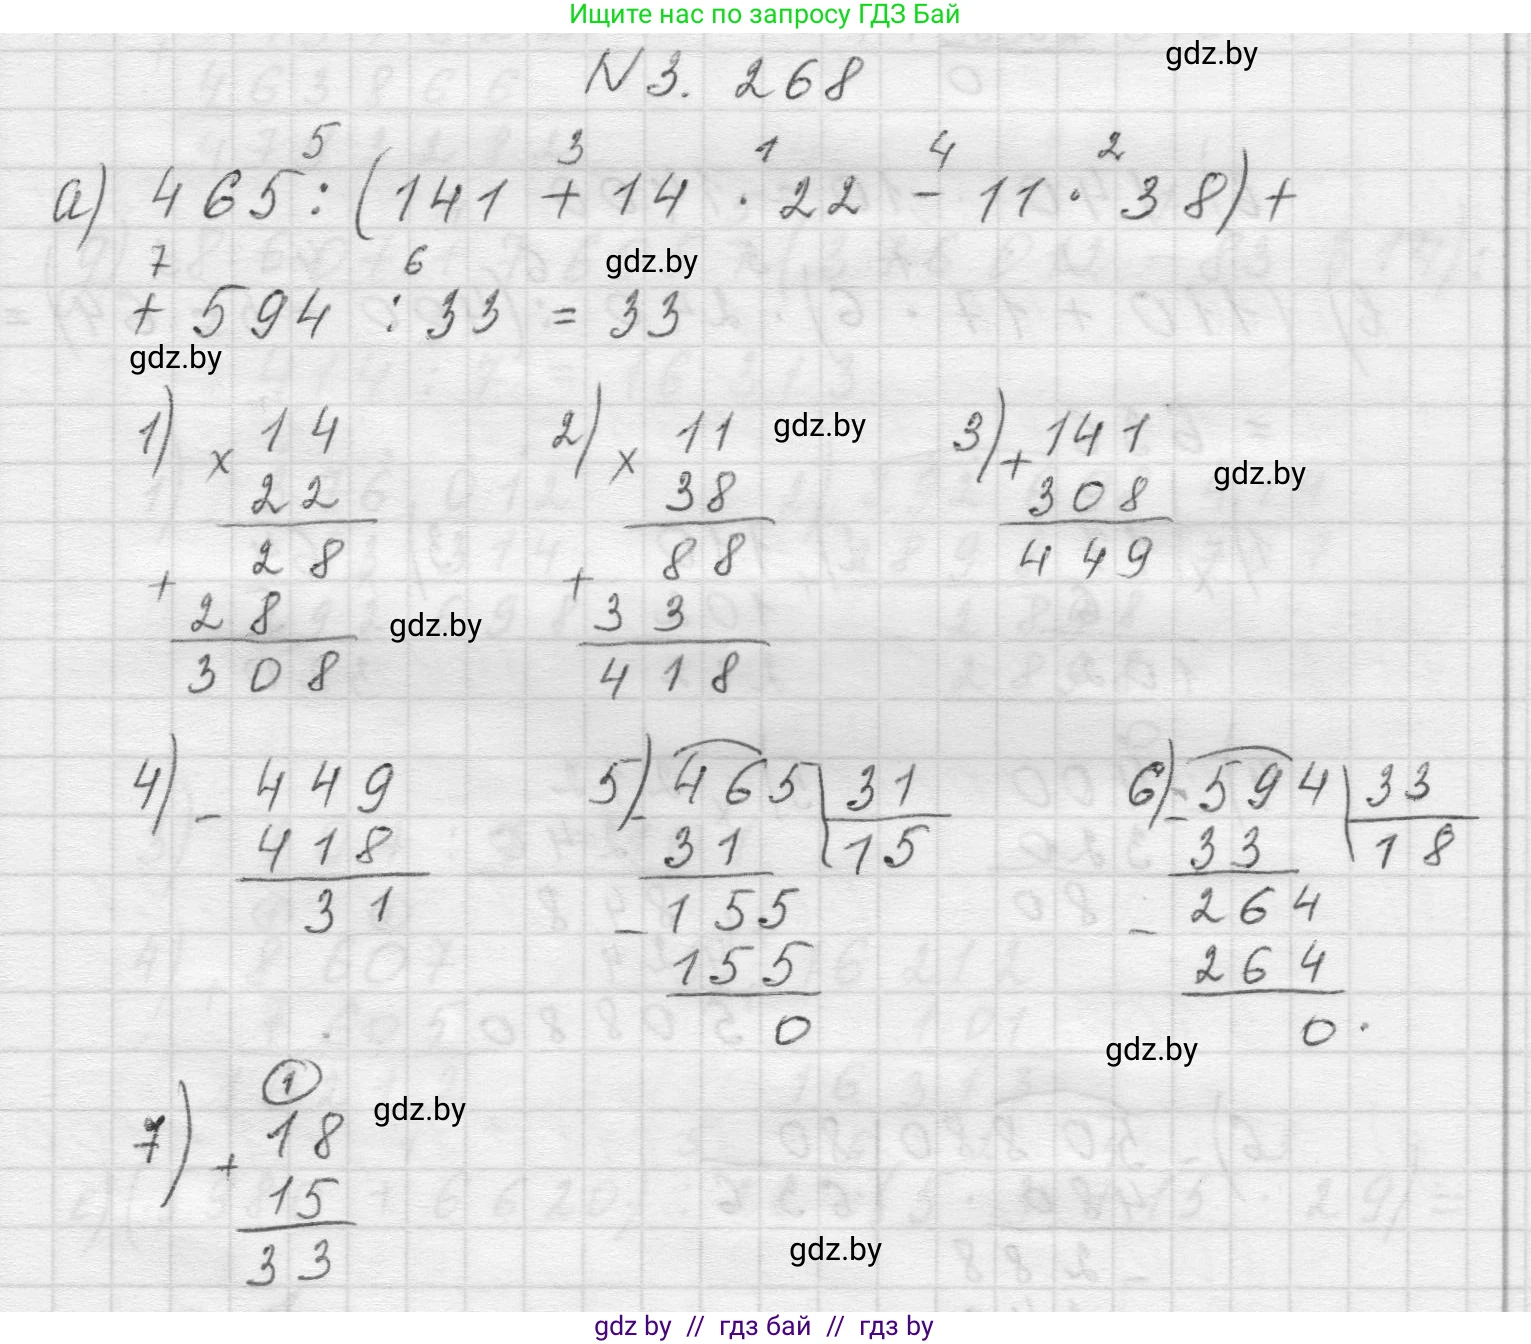 Ищите нас по запросу ГДЗ Бай
gdz.by
N 3. 268
5 3 1 4 2
а) 465 : (141 + 14 · 22 - 11 · 38) +
7 6 gdz.by
+ 594 : 33 = 33
gdz.by
1) × 14
22
28
+ 28
308
gdz.by
2) × 11
38
88
+ 33
418
gdz.by
3) + 141
308
449
gdz.by
4) - 449
418
31
5) - 465 | 31
31 | 15
- 155
155
0
6) - 594 | 33
33 | 18
- 264
264
0
gdz.by
1
7) + 18
15
33
gdz.by
gdz.by
gdz by // гдз бай // гдз by